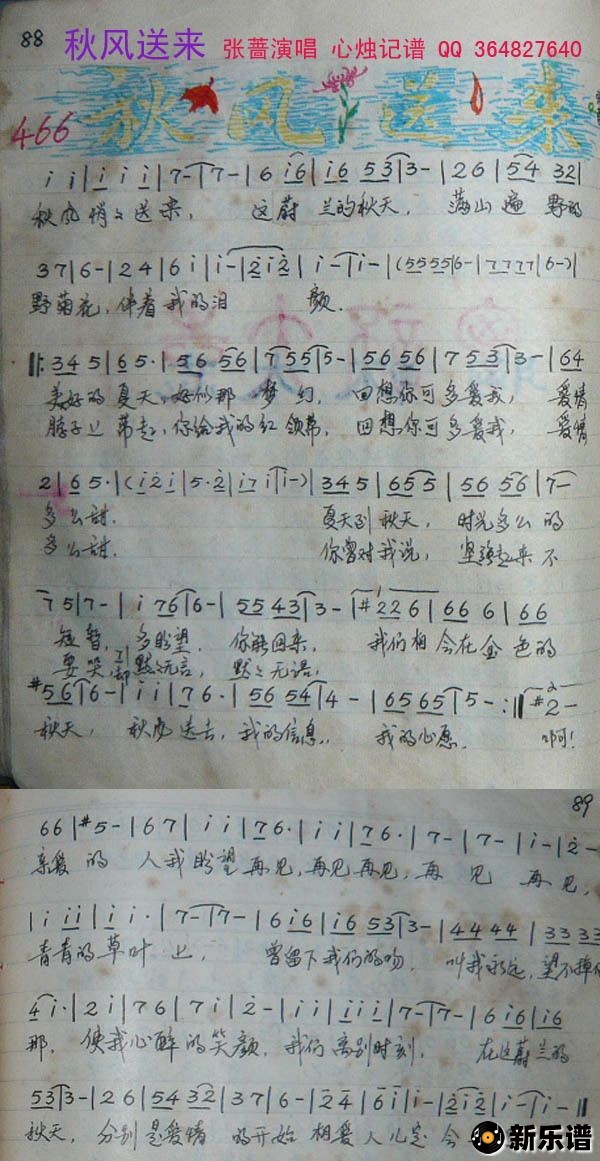 88 秋风送来 张蔷演唱 心烛记谱 QQ 364827640
466 秋风送来
i i | i i i | 7- | 7- | 6 i6 | i6 53 | 3- | 26 | 54 32 |
秋风悄々送来, 这蔚兰的秋天, 满山遍野的
37 | 6- | 24 | 6 i | i- | 2i2 | i- | i- | (5555 | 6- | 7777 | 6-) |
野菊花, 伴着我的泪颜.
‖: 34 5 | 65· | 56 56 | 755 | 5- | 56 56 | 7 53 | 3- | 64
美好的夏天, 好似那梦幻, 回想你可多爱我, 爱情
脖子上, 你给我的红领带, 回想你可多爱我, 爱情
2 | 65· | (i2i | 5·2 | i7i | i-) | 345 | 655 | 56 56 | 7-
多么甜. 夏天到秋天, 时光多么的
多么甜. 你曾对我说, 起来不
75 | 7- | i 76 | 6- | 55 43 | 3- | #226 | 66 6 | 66
短暂, 多盼望你能回来, 我们相会在金色的
要哭, 却默々无言, 默々无语,
#56 | 6- | i i | 7 6· | 56 54 | 4- | 65 65 | 5- :‖ #2-
秋天, 秋风送去, 我的信息, 我的心愿. 啊!
89
66 | #5- | 67 | i i | 76· | i i | 76· | 7- | 7- | i- | 2-
亲爱的人我盼望再见, 再见再见, 再见再见,
| i ii | i i· | 7- | 7- | 6 i6 | i6 53 | 3- | 44 44 | 33 33
青青的草叶上, 曾留下我们的吻, 叫我永远, 望不掉你
4 i· | 2i | 76 | 7i | 2- | i i | iii | 7- | 7- | 6 i6 | i6
那, 使我心醉的笑颜, 我们离别时刻, 在这蔚兰的
53 | 3- | 26 | 54 32 | 37 | 6- | 24 | 6i | i- | 2i2 | i- | i- ‖
秋天, 分别是爱情的开始相爱人儿定会
新乐谱